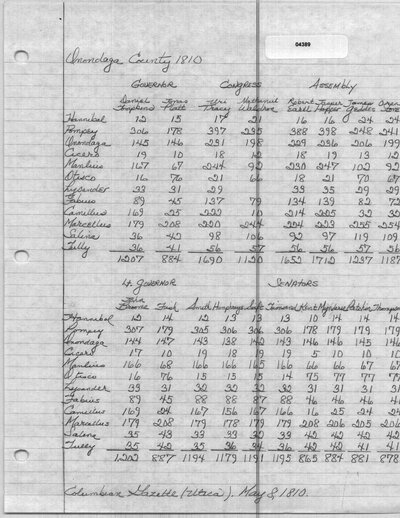 04389
Onondaga County 1810
GOVERNOR CONGRESS ASSEMBLY
Daniel Tompkins Jonas Platt Uri Tracy Nathaniel Waldron Robert Earll Jasper Hopper James Geddes
Hannibal 12 15 17 21 16 16 24 24
Pompey 306 178 397 235 388 398 248 241
Onondaga 145 146 231 198 229 236 206 199
Cicero 19 10 18 12 18 19 13 12
Manlius 167 67 244 92 230 247 102 92
Otisco 16 76 21 66 18 21 70 67
Lysander 33 31 29 33 35 29 29
Fabius 89 45 137 79 134 139 82 72
Camillus 169 25 222 10 214 225 32 32
Marcellus 179 208 220 244 224 223 256 254
Salina 36 42 98 106 92 97 119 109
Tully 36 41 56 57 56 56 57 56
1207 884 1690 1120 1652 1712 1237 1187
Lt GOVERNOR SENATORS
John Broome Fish Smith Humphreys Taft Townsend Kent Mynderse Patchin Thompson
Hannibal 12 14 12 13 13 13 10 14 14 14
Pompey 307 179 305 306 306 306 178 179 179 179
Onondaga 144 147 143 138 142 143 146 146 145 146
Cicero 17 10 19 18 19 19 5 10 10 10
Manlius 166 68 166 166 165 166 66 66 67 67
Otisco 16 76 15 15 15 14 75 77 77 77
Lysander 33 31 32 32 32 32 31 31 31 31
Fabius 89 45 88 88 87 88 46 46 46 41
Camillus 169 24 167 156 167 166 16 25 24 24
Marcellus 179 208 179 178 179 179 208 206 205 206
Salina 35 43 33 33 32 33 42 42 42 42
Tully 35 42 35 36 34 36 42 42 41 41
1202 887 1194 1179 1191 1195 865 884 881 878
Columbian Gazette (Utica). May 8, 1810.